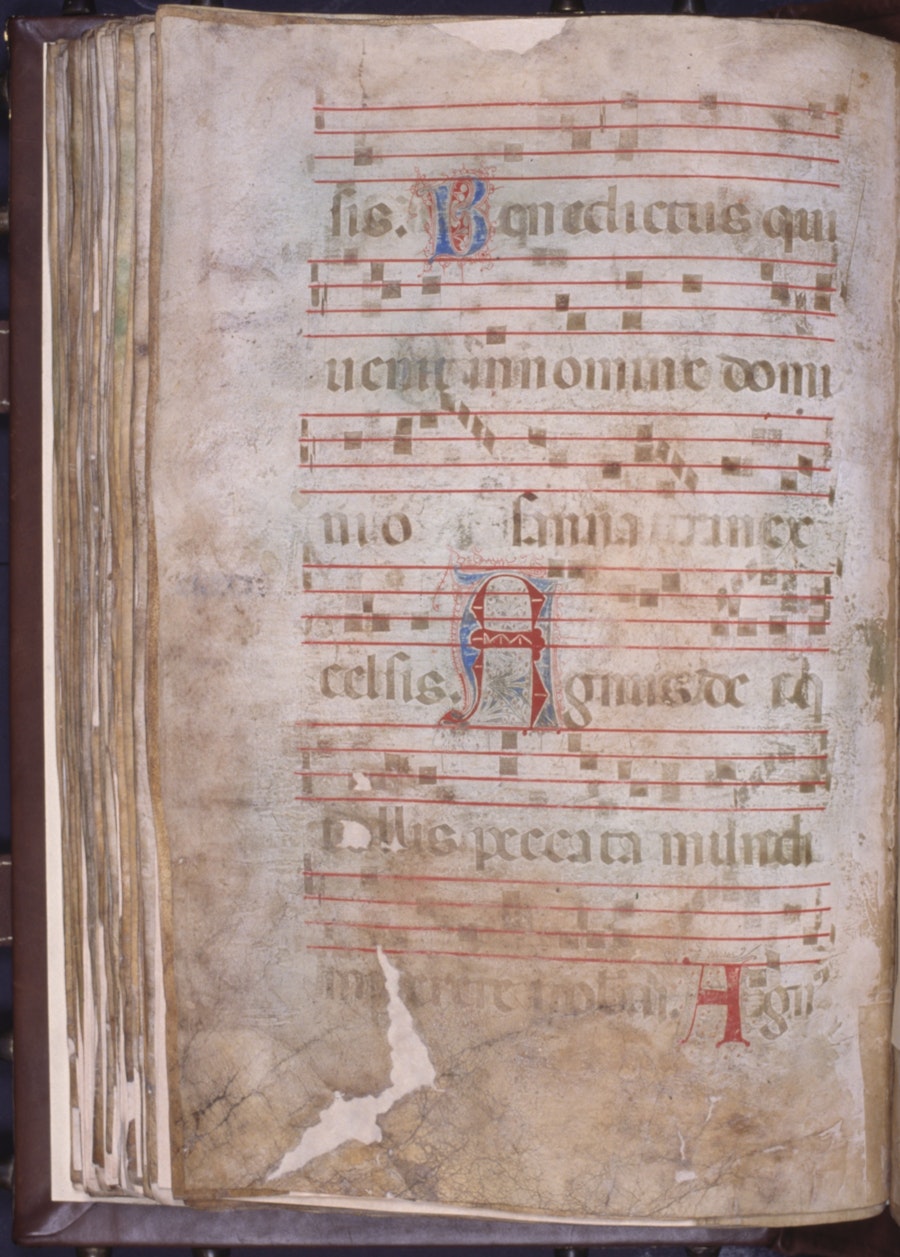 sis. Benedictus qui
uenit in nomine domi
ni o sanna in ex
celsis. Agnus de i q
tollis peccata mundi
miserere nobis. Agn